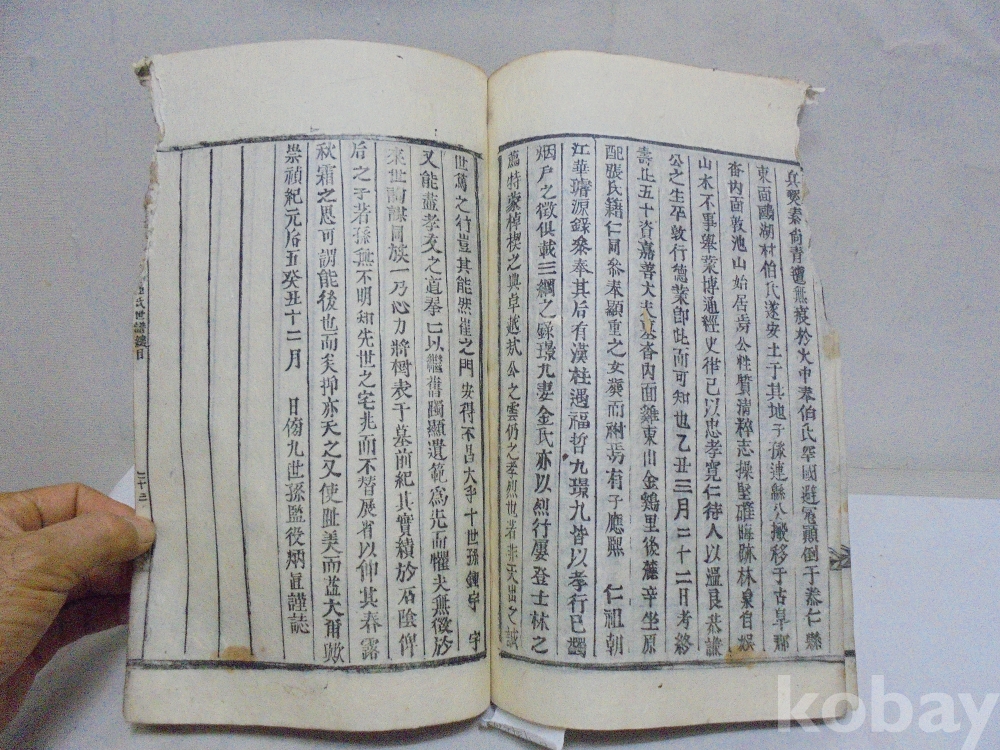 東面鷗湖村伯氏遂安土于其地子孫連綿公搬移于古阜鄕
沓內面敦池山始居焉公性質清粹志操堅確晦跡林泉自娛
山水不事擧業博通經史律己以忠孝寬仁待人以溫良恭謙
公之生卒敦行德業卽此而可知也乙丑三月二十二日考終
壽止五十資嘉善大夫墓沓內面雞東山金鷄里後麓辛坐原
配張氏籍仁同參奉顯重之女葬而祔焉有子應熙 仁祖朝
江華璿源錄參奉其后有漢柱遇福哲九璟九皆以孝行已蠲
烟戶之徵俱載三綱之錄璟九妻金氏亦以烈行屢登士林之
薦特蒙棹楔之典卓越哉公之雲仍之孝烈也若非天出之誠
世篤之行豈其能然崔之門安得不昌大乎十世孫 宇 宇
又能盡孝友之道拳已以繼舊闡顯遺範爲先而懼夫無徵於
來世詢謀同族一乃心力將樹表于墓前紀其實績於乃陰俾
后之子若孫無不明知先世之宅兆而不替展省以仰其春露
秋霜之思可謂能後也而矣抑亦天之又使趾美而益大爾歟
崇禎紀元后五癸丑十二月 日傍九世孫監役炳 謹誌
氏世譜
kobay